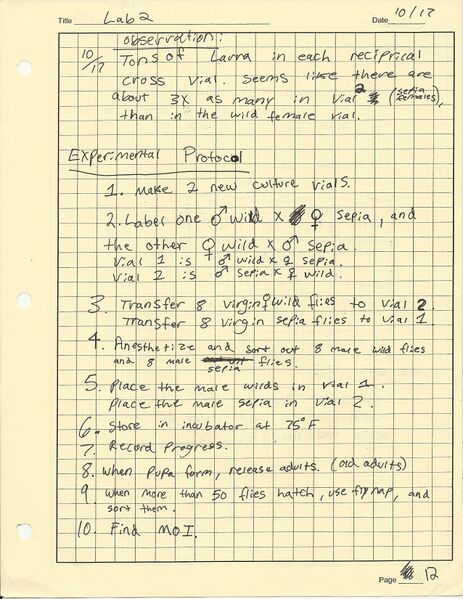 Title Lab 2 Date 10/17
observation:
10/17 Tons of Larva in each reciprical
cross vial. Seems like there are
about 3x as many in vial 2 (sepia females),
than in the wild female vial.
Experimental Protocol
1. Make 2 new culture vials.
2. Label one ♂ wild x ♀ sepia, and
the other ♀ wild x ♂ sepia.
vial 1 is ♂ wild x ♀ sepia.
vial 2 is ♂ sepia x ♀ wild.
3. Transfer 8 virgin ♀ wild flies to vial 2.
Transfer 8 virgin sepia flies to vial 1
4. Anesthetize and sort out 8 male wild flies
and 8 male sepia flies.
5. Place the male wilds in vial 1.
Place the male sepia in vial 2.
6. Store in incubator at 75°F
7. Record Progress.
8. When pupa form, release adults. (old adults)
9. When more than 50 flies hatch, use fly nap, and
sort them.
10. Find MOI.
Page 12